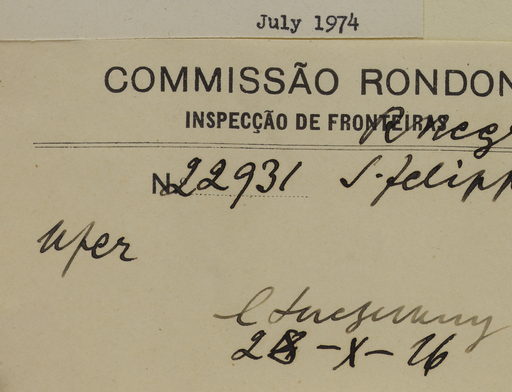 July 1974
COMMISSÃO RONDON
INSPECÇÃO DE FRONTEIRAS
R. neg
No. 22931 S. Felipp
28-X-26